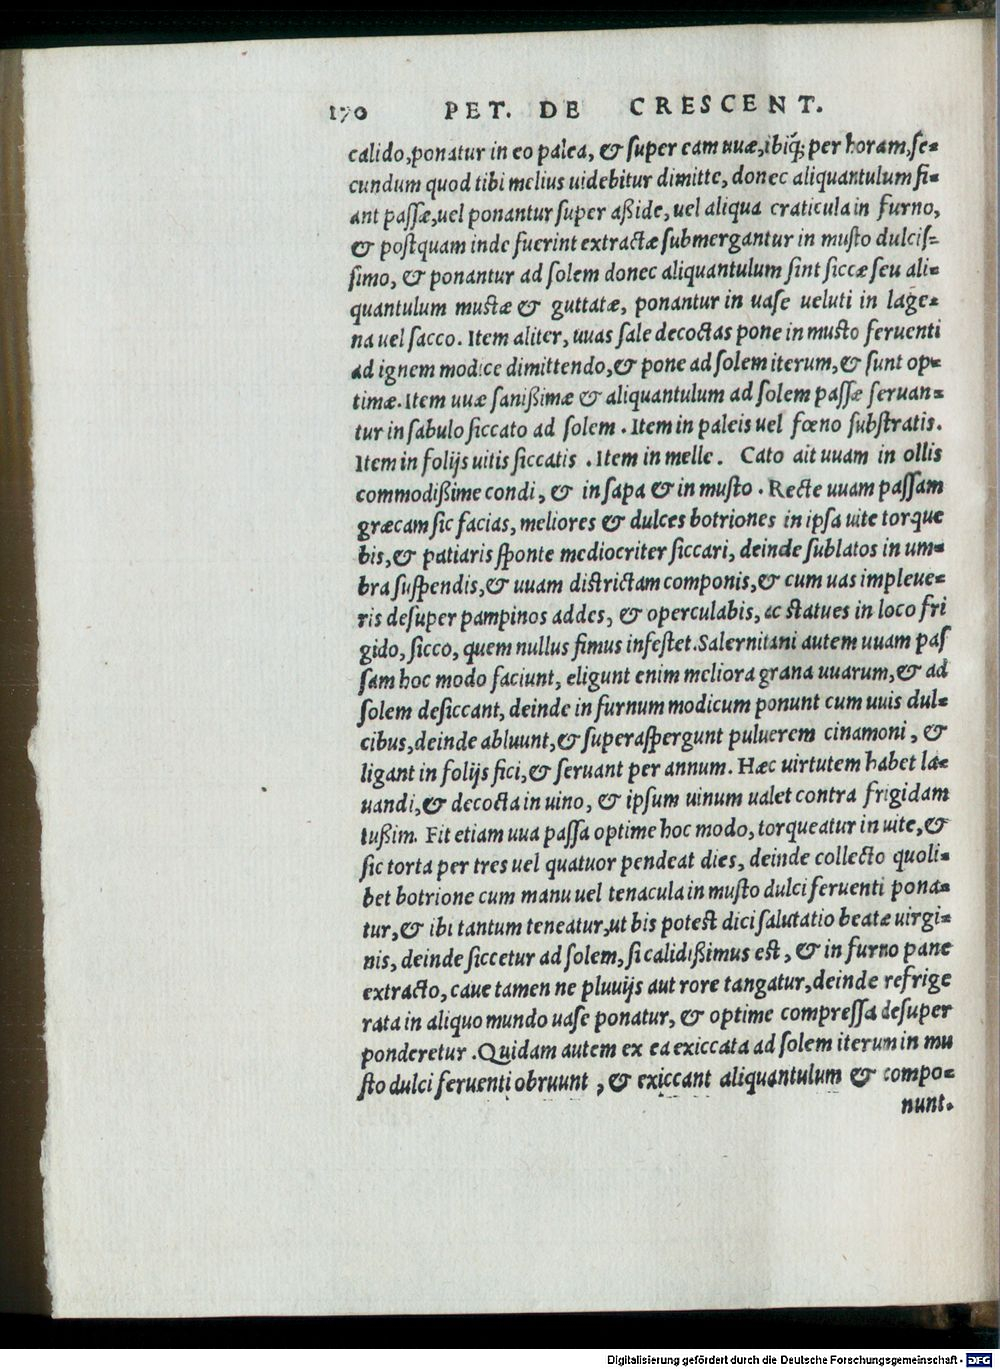 170 PET. DE CRESCENT.
calido, ponatur in eo palea, & super eam uuæ, ibiq́; per horam, se-
cundum quod tibi melius uidebitur dimitte, donec aliquantulum fi-
ant passæ, uel ponantur super aßide, uel aliqua craticula in furno,
& postquam inde fuerint extractæ submergantur in musto dulcis-
simo, & ponantur ad solem donec aliquantulum sint siccæ seu ali-
quantulum mustæ & guttatæ, ponantur in uase ueluti in lage-
na uel sacco. Item aliter, uuas sale decoctas pone in musto feruenti
ad ignem modice dimittendo, & pone ad solem iterum, & sunt op-
timæ. Item uuæ sanißimæ & aliquantulum ad solem passæ seruan-
tur in sabulo siccato ad solem. Item in paleis uel fœno substratis.
Item in folijs uitis siccatis. Item in melle. Cato ait uuam in ollis
commodißime condi, & in sapa & in musto. Recte uuam passam
græcam sic facias, meliores & dulces botriones in ipsa uite torque
bis, & patiaris sponte mediocriter siccari, deinde sublatos in um-
bra suspendis, & uuam districtam componis, & cum uas impleue-
ris desuper pampinos addes, & operculabis, ac statues in loco fri
gido, sicco, quem nullus fimus infestet. Salernitani autem uuam pas
sam hoc modo faciunt, eligunt enim meliora grana uuarum, & ad
solem desiccant, deinde in furnum modicum ponunt cum uuis dul-
cibus, deinde abluunt, & superaspergunt puluerem cinamoni, &
ligant in folijs fici, & seruant per annum. Hæc uirtutem habet la-
uandi, & decocta in uino, & ipsum uinum ualet contra frigidam
tußim. Fit etiam uua passa optime hoc modo, torqueatur in uite, &
sic torta per tres uel quatuor pendeat dies, deinde collecto quoli-
bet botrione cum manu uel tenacula in musto dulci feruenti pona-
tur, & ibi tantum teneatur, ut bis potest dici salutatio beatæ uirgi-
nis, deinde siccetur ad solem, si calidißimus est, & in furno pane
extracto, caue tamen ne pluuijs aut rore tangatur, deinde refrige
rata in aliquo mundo uase ponatur, & optime compressa desuper
ponderetur. Quidam autem ex ea exiccata ad solem iterum in mu
sto dulci feruenti obruunt, & exiccant aliquantulum & compo-
nunt.
Digitalisierung gefördert durch die Deutsche Forschungsgemeinschaft - DFG